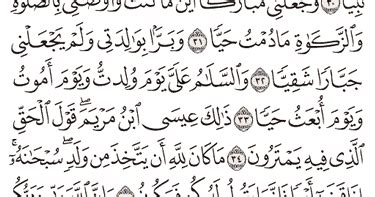 نَبِيًّا ٣٠ وَجَعَلَنِي مُبَارَكًا أَيْنَ مَا كُنتُ وَأَوْصَٰنِي بِٱلصَّلَوٰةِ
وَٱلزَّكَوٰةِ مَا دُمْتُ حَيًّا ٣١ وَبَرًّۢا بِوَٰلِدَتِي وَلَمْ يَجْعَلْنِي
جَبَّارًا شَقِيًّا ٣٢ وَٱلسَّلَٰمُ عَلَيَّ يَوْمَ وُلِدتُّ وَيَوْمَ أَمُوتُ
وَيَوْمَ أُبْعَثُ حَيًّا ٣٣ ذَٰلِكَ عِيسَى ٱبْنُ مَرْيَمَۖ قَوْلَ ٱلْحَقِّ
ٱلَّذِي فِيهِ يَمْتَرُونَ ٣٤ مَا كَانَ لِلَّهِ أَن يَتَّخِذَ مِن وَلَدٍۖ سُبْحَٰنَهُۥٓۚ